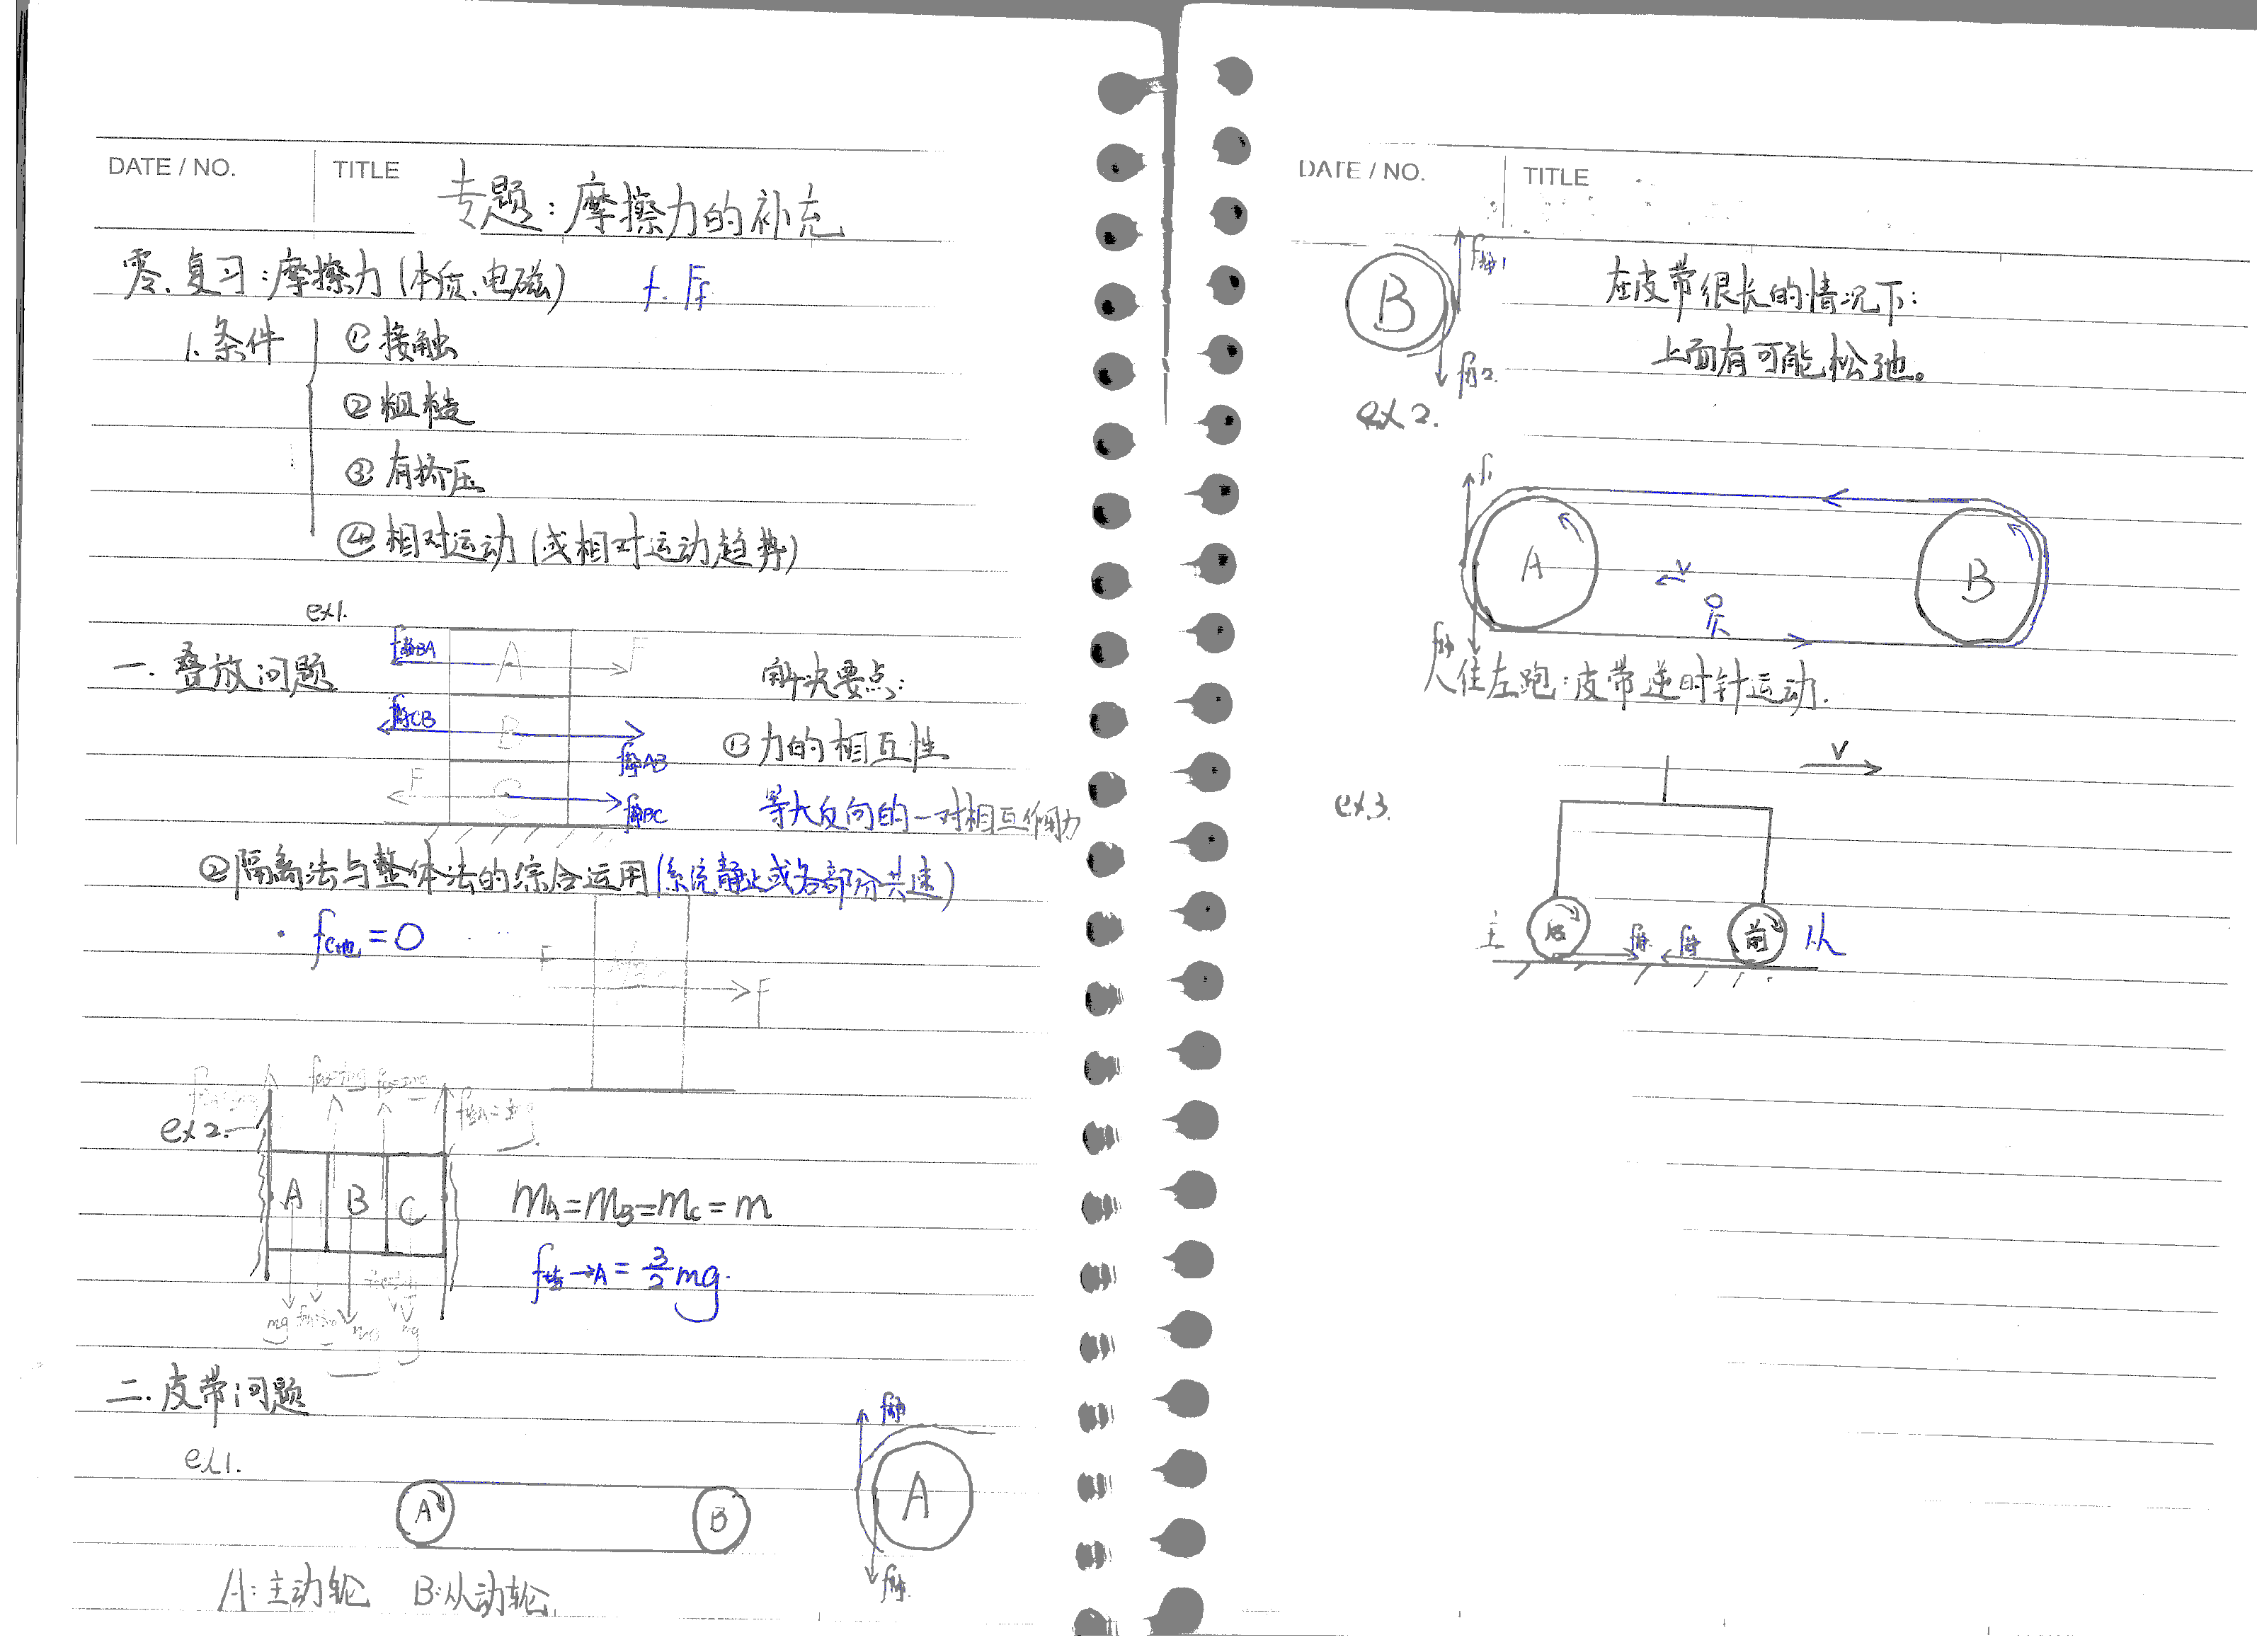 DATE / NO. TITLE 专题：摩擦力的补充
零、复习：摩擦力（本质、电磁） f. Ff
1. 条件 ① 接触
② 粗糙
③ 有挤压
④ 相对运动（或相对运动趋势）
ex1.
一. 叠放问题
f静BA A F
f静CB B f静AB
F C f静BC
解决要点：
① 力的相互性
等大反向的一对相互作用力
② 隔离法与整体法的综合运用（系统静止或各部分共速）
· fC地 = 0
F F
ex2.
A B C
mg mg mg
mA=mB=mC=m
f墙→A = 3/2 mg.
二. 皮带问题
ex1.
A B
f静 A f静
A：主动轮 B：从动轮
DATE / NO. TITLE
B f静1 f静2
在皮带很长的情况下：
上面有可能松弛。
ex2.
f1 A v B
f静
人往左跑：皮带逆时针运动.
ex3.
v
主 后 f静 f静 前 从